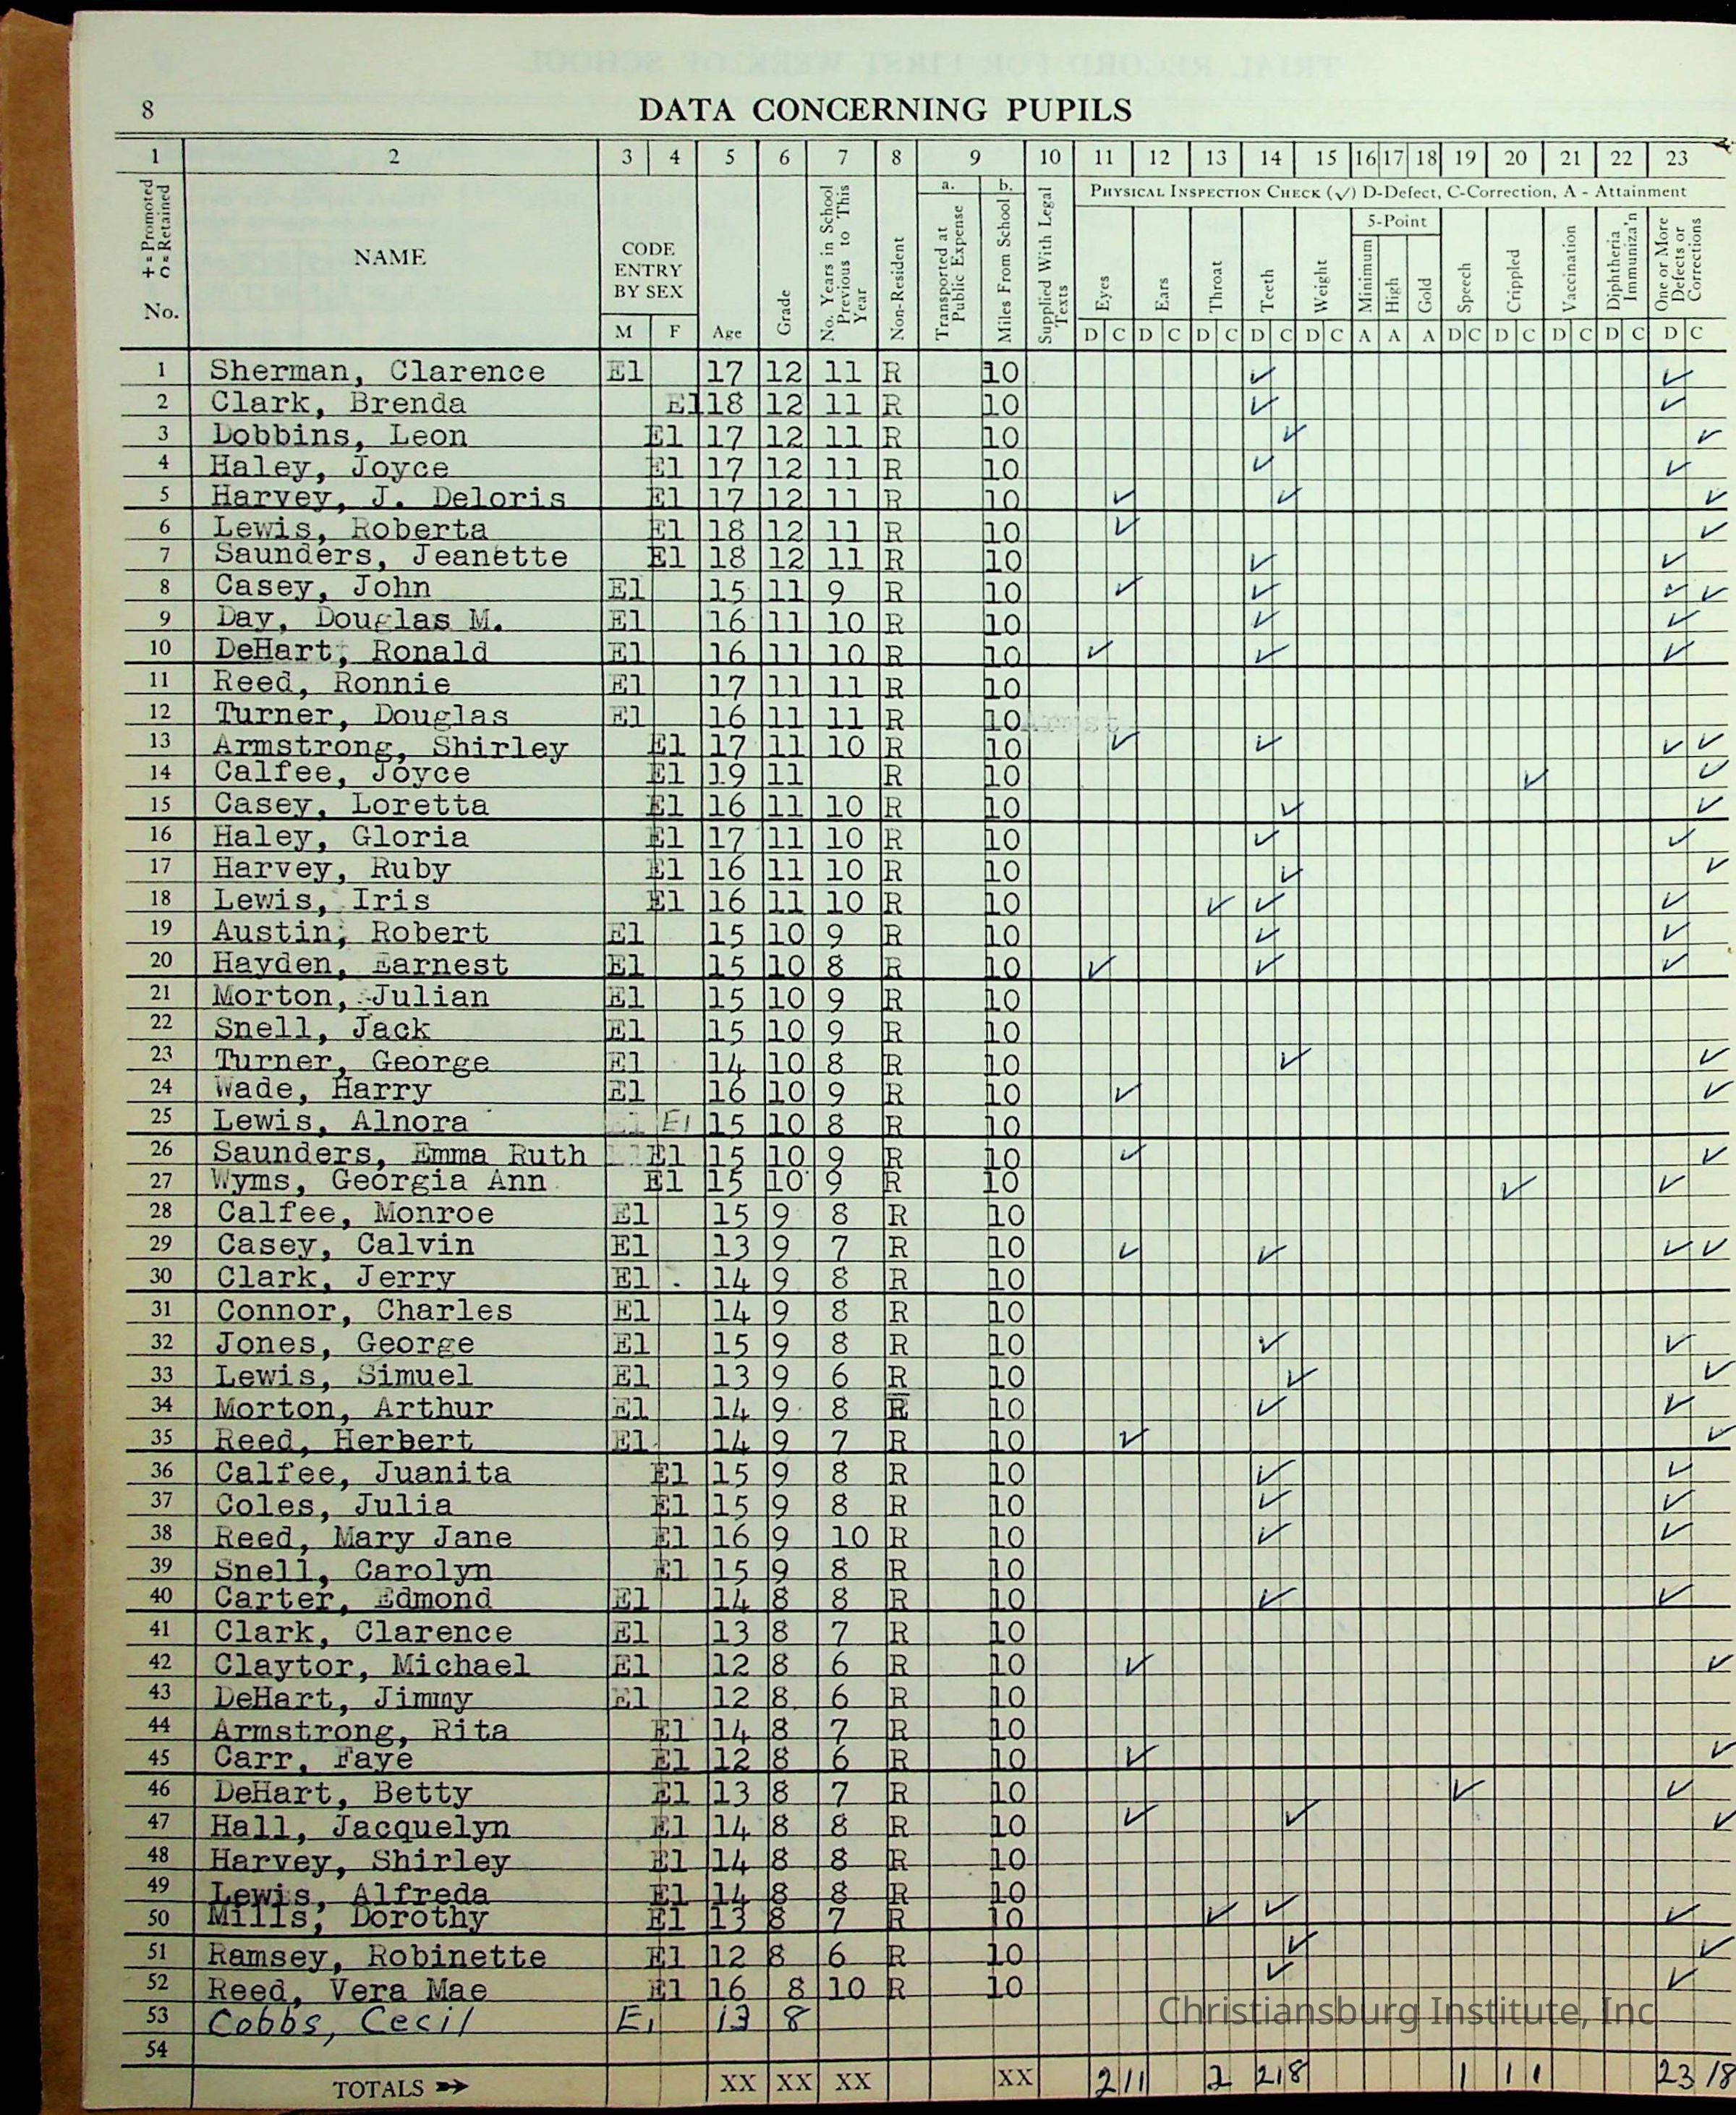 8 DATA CONCERNING PUPILS
1 2 3 4 5 6 7 8 9 10 11 12 13 14 15 16 17 18 19 20 21 22 23
+ = Promoted
o = Retained
No.
NAME
CODE
ENTRY
BY SEX
M F
Age
Grade
No. Years in School
Previous to This
Year
Non-Resident
a.
Transported at
Public Expense
b.
Miles From School
Supplied With Legal
Texts
PHYSICAL INSPECTION CHECK (✓) D-Defect, C-Correction, A - Attainment
Eyes
Ears
Throat
Teeth
Weight
5-Point
Minimum
High
Gold
Speech
Crippled
Vaccination
Diphtheria
Immuniza'n
One or More
Defects or
Corrections
D C D C D C D C D C A A A D C D C D C D C D C
1 Sherman, Clarence El 17 12 11 R 10 ✓ ✓
2 Clark, Brenda El 18 12 11 R 10 ✓ ✓
3 Dobbins, Leon El 17 12 11 R 10 ✓ ✓
4 Haley, Joyce El 17 12 11 R 10 ✓ ✓
5 Harvey, J. Deloris El 17 12 11 R 10 ✓ ✓ ✓
6 Lewis, Roberta El 18 12 11 R 10 ✓ ✓
7 Saunders, Jeanette El 18 12 11 R 10 ✓ ✓
8 Casey, John El 15 11 9 R 10 ✓ ✓ ✓ ✓
9 Day, Douglas M. El 16 11 10 R 10 ✓ ✓
10 DeHart, Ronald El 16 11 10 R 10 ✓ ✓ ✓
11 Reed, Ronnie El 17 11 11 R 10
12 Turner, Douglas El 16 11 11 R 10
13 Armstrong, Shirley El 17 11 10 R 10 ✓ ✓ ✓ ✓
14 Calfee, Joyce El 19 11 R 10 ✓ ✓
15 Casey, Loretta El 16 11 10 R 10 ✓ ✓
16 Haley, Gloria El 17 11 10 R 10 ✓ ✓
17 Harvey, Ruby El 16 11 10 R 10 ✓ ✓
18 Lewis, Iris El 16 11 10 R 10 ✓ ✓ ✓
19 Austin, Robert El 15 10 9 R 10 ✓ ✓
20 Hayden, Earnest El 15 10 8 R 10 ✓ ✓ ✓
21 Morton, Julian El 15 10 9 R 10
22 Snell, Jack El 15 10 9 R 10
23 Turner, George El 14 10 8 R 10 ✓ ✓
24 Wade, Harry El 16 10 9 R 10 ✓ ✓
25 Lewis, Alnora El 15 10 8 R 10
26 Saunders, Emma Ruth El 15 10 9 R 10 ✓ ✓
27 Wyms, Georgia Ann El 15 10 9 R 10 ✓ ✓
28 Calfee, Monroe El 15 9 8 R 10
29 Casey, Calvin El 13 9 7 R 10 ✓ ✓ ✓ ✓
30 Clark, Jerry El 14 9 8 R 10
31 Connor, Charles El 14 9 8 R 10
32 Jones, George El 15 9 8 R 10 ✓ ✓
33 Lewis, Simuel El 13 9 6 R 10 ✓ ✓
34 Morton, Arthur El 14 9 8 R 10 ✓ ✓
35 Reed, Herbert El 14 9 7 R 10 ✓ ✓
36 Calfee, Juanita El 15 9 8 R 10 ✓ ✓
37 Coles, Julia El 15 9 8 R 10 ✓ ✓
38 Reed, Mary Jane El 16 9 10 R 10 ✓ ✓
39 Snell, Carolyn El 15 9 8 R 10
40 Carter, Edmond El 14 8 8 R 10 ✓ ✓
41 Clark, Clarence El 13 8 7 R 10
42 Claytor, Michael El 12 8 6 R 10 ✓ ✓
43 DeHart, Jimmy El 12 8 6 R 10
44 Armstrong, Rita El 14 8 7 R 10
45 Carr, Faye El 12 8 6 R 10 ✓ ✓
46 DeHart, Betty El 13 8 7 R 10 ✓ ✓
47 Hall, Jacquelyn El 14 8 8 R 10 ✓ ✓ ✓
48 Harvey, Shirley El 14 8 8 R 10
49 Lewis, Alfreda El 14 8 8 R 10
50 Mills, Dorothy El 13 8 7 R 10 ✓ ✓ ✓
51 Ramsey, Robinette El 12 8 6 R 10 ✓ ✓
52 Reed, Vera Mae El 16 8 10 R 10 ✓ ✓
53 Cobbs, Cecil El 13 8
54
TOTALS XX XX XX XX 2 11 2 21 8 1 1 1 23 18
Christiansburg Institute, Inc